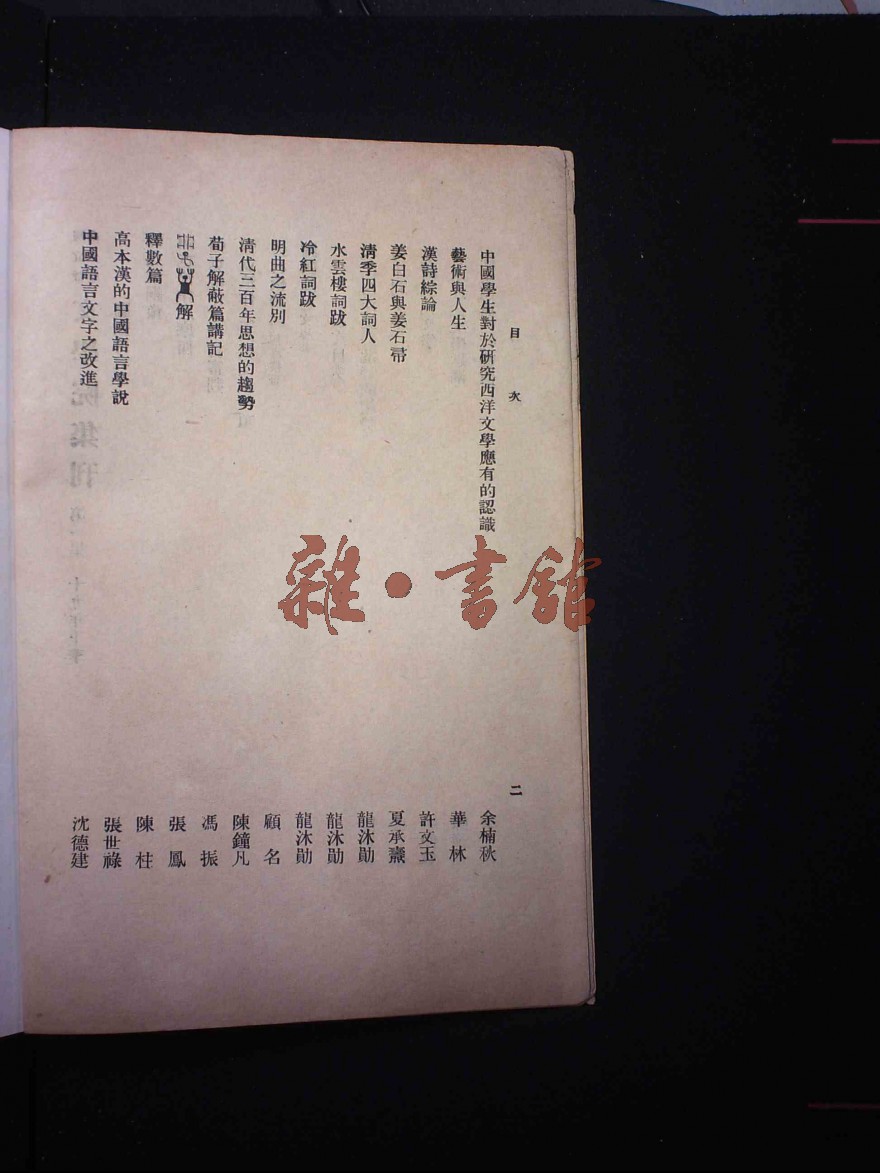 目次
二
中國學生對於研究西洋文學應有的認識 余楠秋
藝術與人生 華林
漢詩綜論 許文玉
姜白石與姜石帚 夏承燾
清季四大詞人 龍沐勛
水雲樓詞跋 龍沐勛
冷紅詞跋 龍沐勛
明曲之流別 顧名
清代三百年思想的趨勢 陳鐘凡
荀子解蔽篇講記 馮振
解 張鳳
釋數篇 陳柱
高本漢的中國語言學說 張世祿
中國語言文字之改進 沈德建
雜·書館